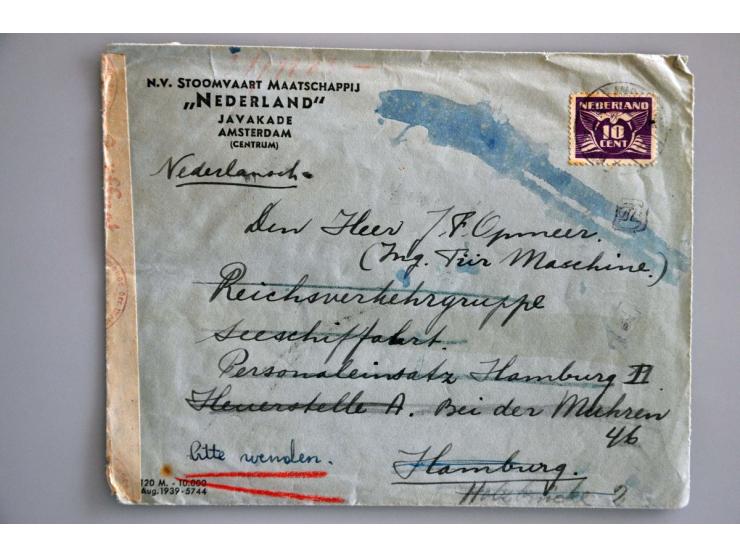 N.V. STOOMVAART MAATSCHAPPIJ
„NEDERLAND"
JAVAKADE
AMSTERDAM
(CENTRUM)
NEDERLAND
10
CENT
Den Heer J. F. Opmeer.
(Ing. Tür Maschine.)
Reichsverkehrgruppe
Seeschiffahrt.
Personaleinsatz Hamburg II
Heuerstelle A. Bei der Muhren
4/6
bitte wenden.
Hamburg.
2
120 M. - 10.000
Aug. 1939-5744